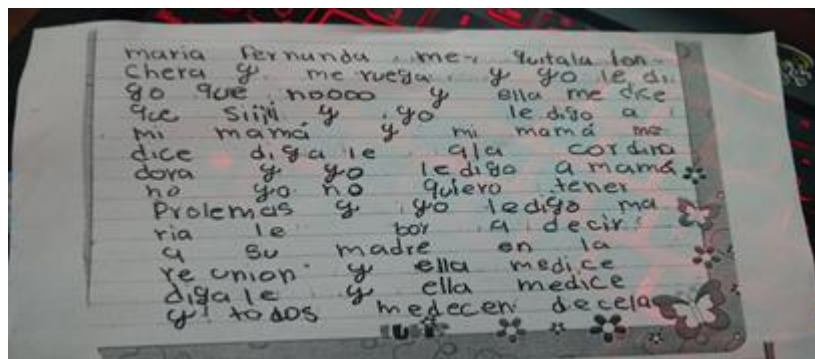 maria fernunda me quitala lon-
chera y me ruega y yo le di
go que noooo y ella me dice
que siiii y yo le digo a
mi mamá y mi mamá me
dice digale a la cordina
dora y yo le digo a mamá
no yo no quiero tener
Prolemas y yo ledigo ma
ria le boy a decir
a su madre en la
reunion y ella medice
digale y ella medice
y todos medecen decela